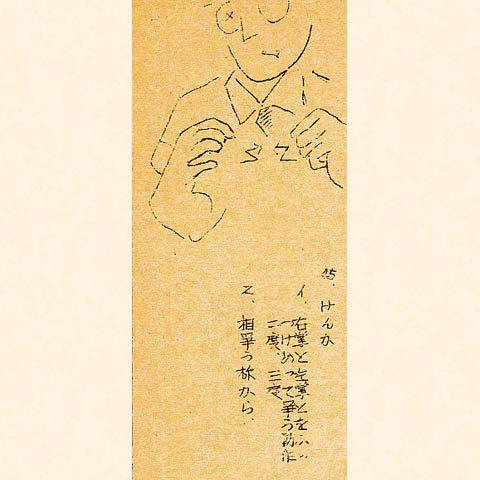 15、けんか
イ、右掌と左掌とを
つけあって争う動作
二度、三度
2、相争う から、